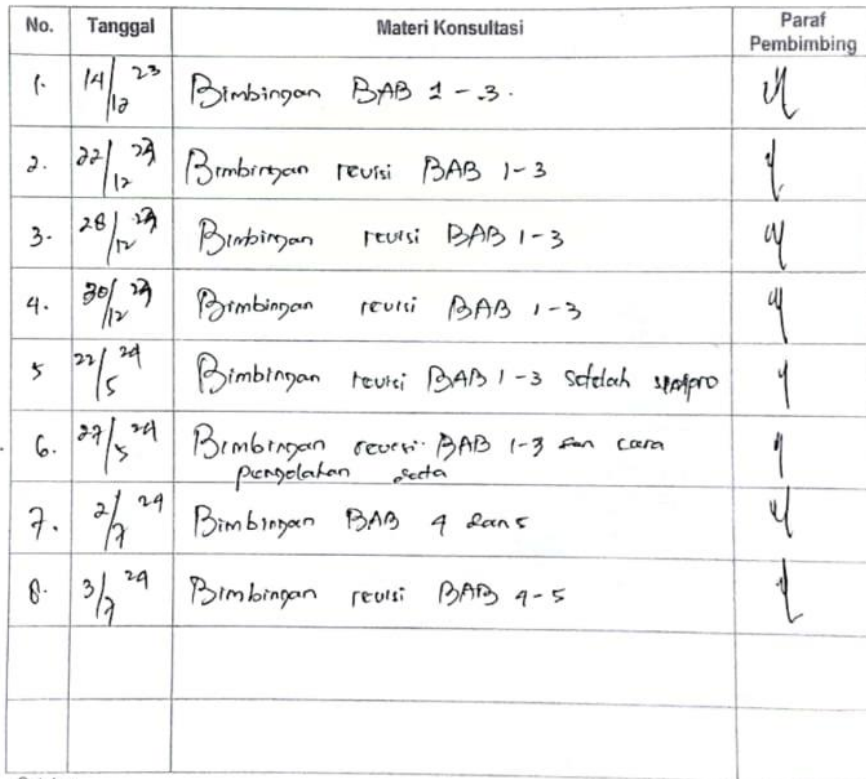 No. Tanggal Materi Konsultasi Paraf Pembimbing
1. 14/12 23 Bimbingan BAB 1 - 3.
2. 22/12 23 Bimbingan revisi BAB 1-3
3. 28/12 23 Bimbingan revisi BAB 1-3
4. 30/12 23 Bimbingan revisi BAB 1-3
5 22/5 24 Bimbingan revisi BAB 1-3 setelah sempro
6. 27/5 24 Bimbingan revisi BAB 1-3 dan cara
pengolahan data
7. 2/7 24 Bimbingan BAB 4 dan 5
8. 3/7 24 Bimbingan revisi BAB 4-5